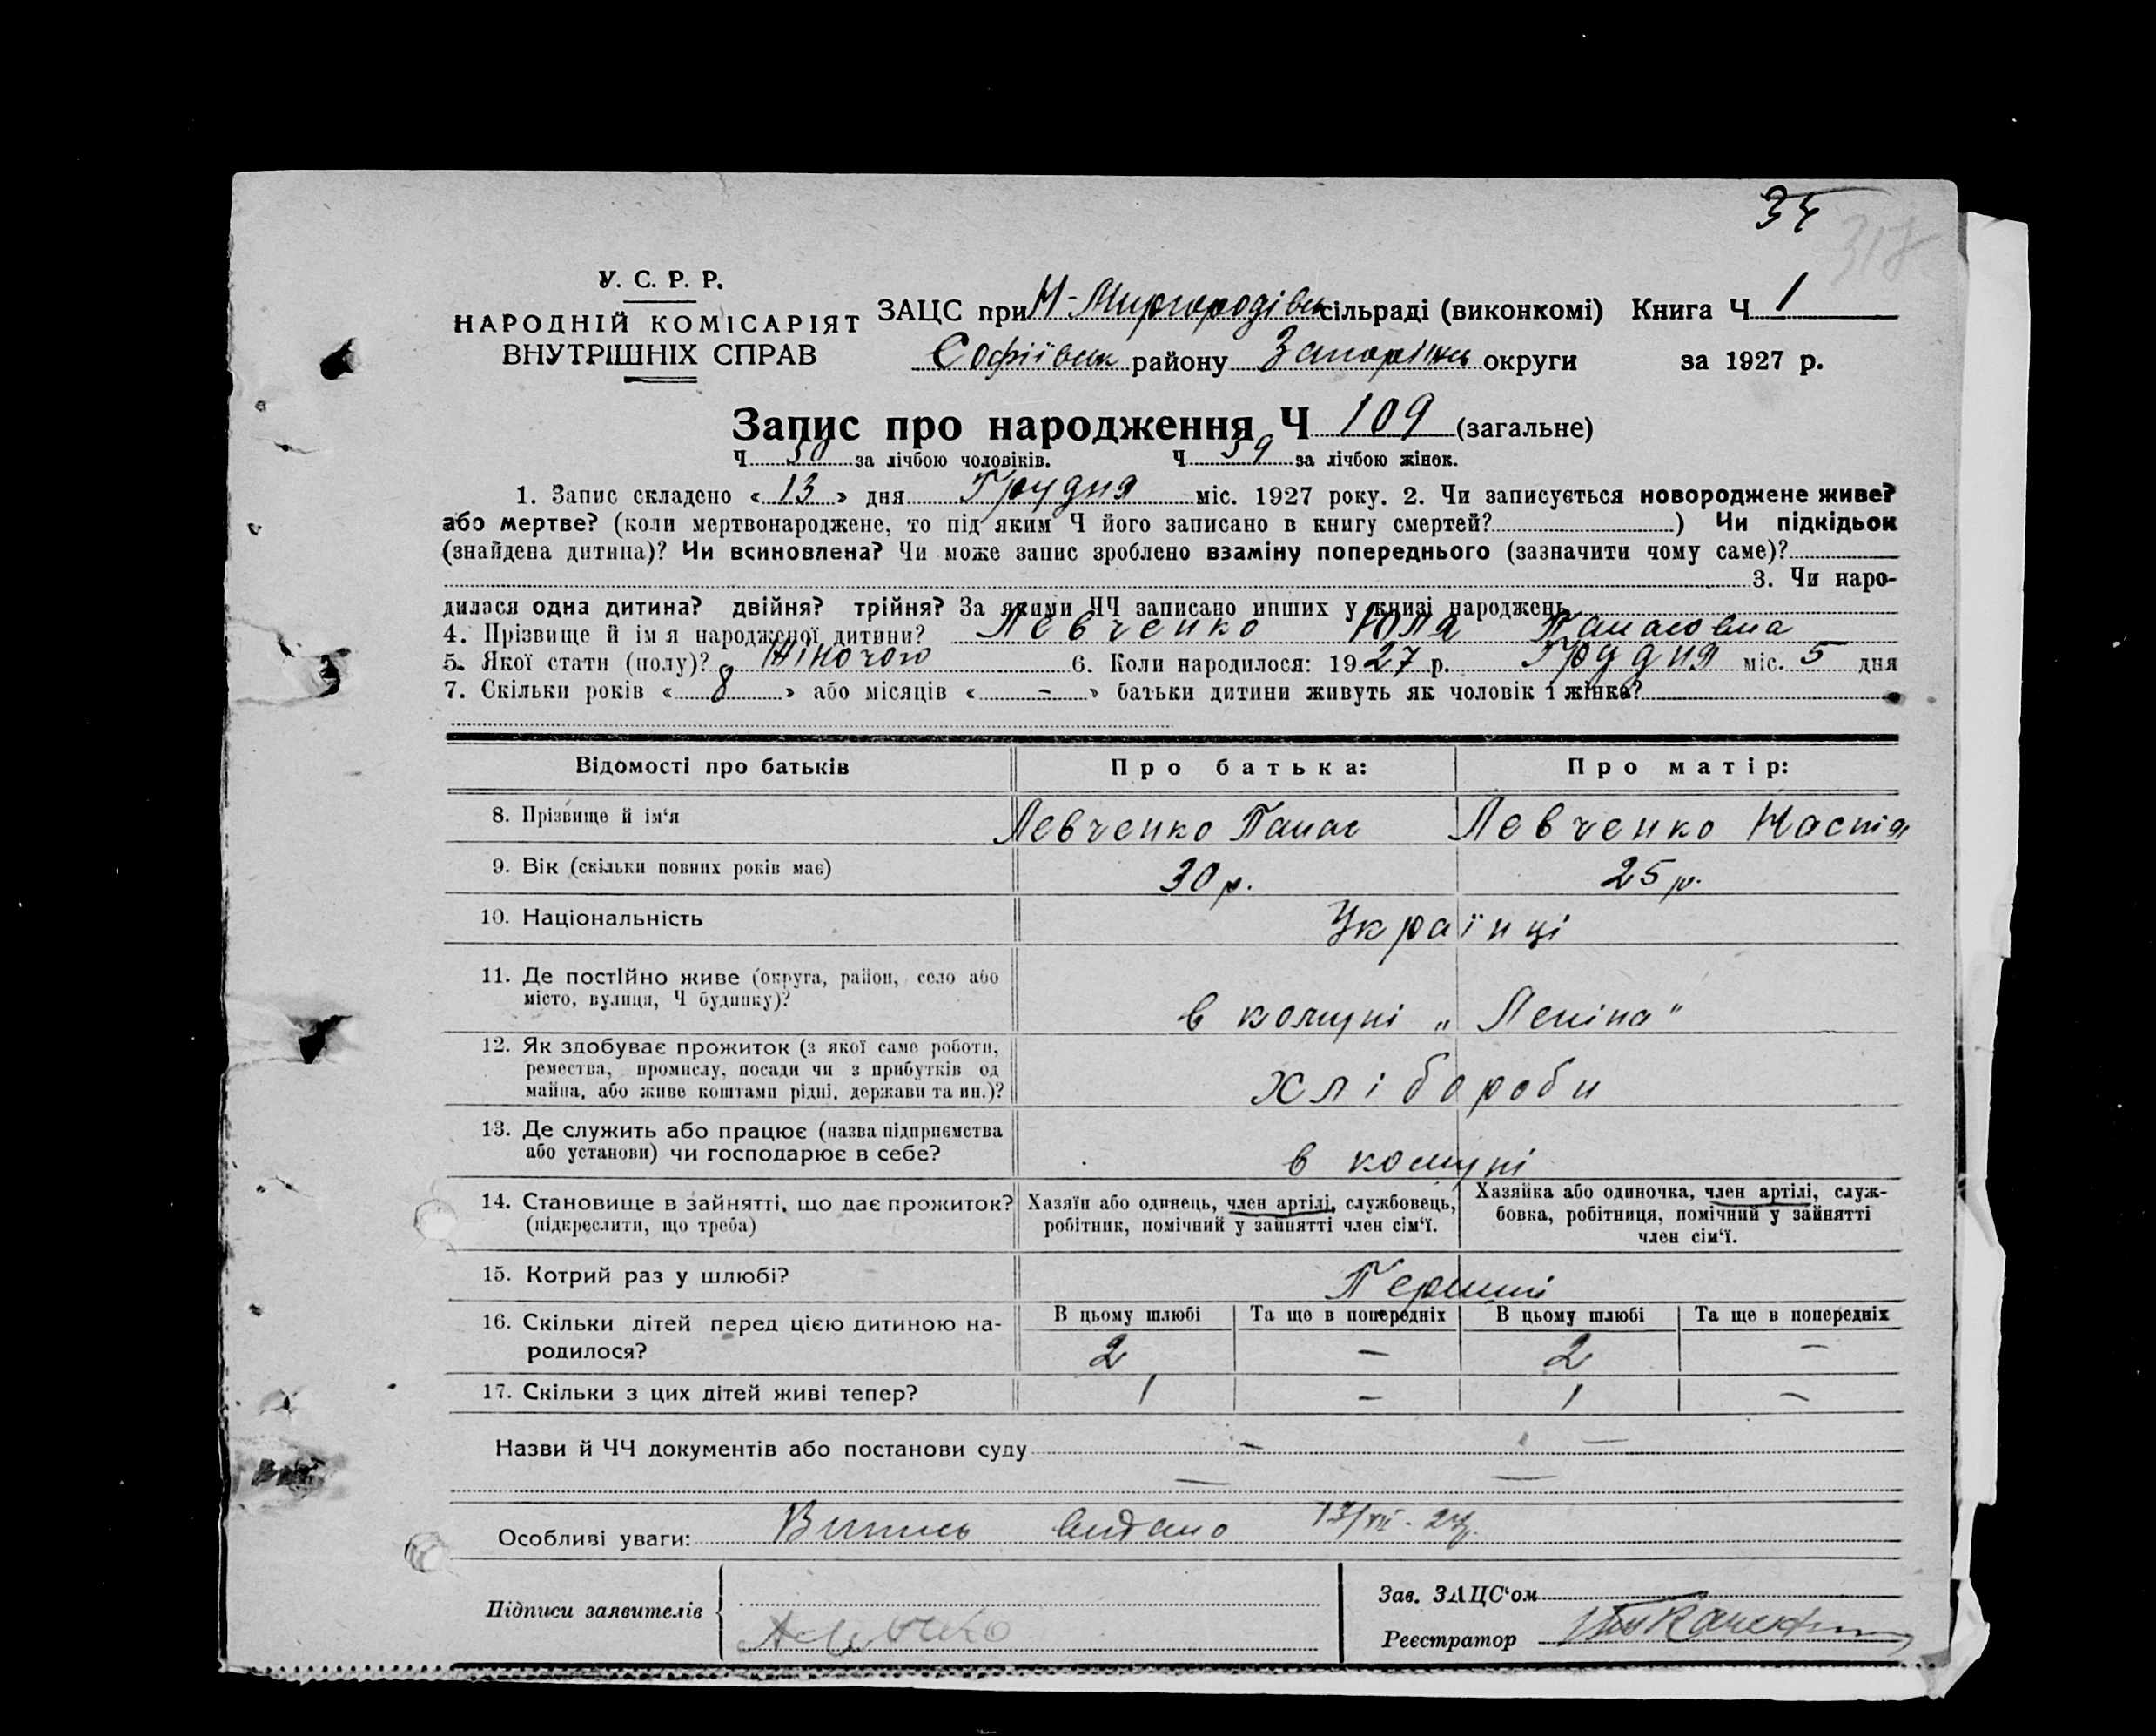 34
318
У. С. Р. Р.
НАРОДНІЙ КОМІСАРІЯТ
ВНУТРІШНІХ СПРАВ
ЗАЦС при Н-Миргородівськ сільраді (виконкомі) Книга Ч 1
Софіївськ району Запоріжськ округи за 1927 р.
Запис про народження Ч 109 (загальне)
Ч 50 за лічбою чоловіків. Ч 59 за лічбою жінок.
1. Запис складено « 13 » дня Грудня міс. 1927 року. 2. Чи записується новороджене живе?
або мертве? (коли мертвонароджене, то під яким Ч його записано в книгу смертей?) Чи підкідьок
(знайдена дитина)? Чи всиновлена? Чи може запис зроблено взаміну попереднього (зазначити чому саме)?
3. Чи наро-
дилася одна дитина? двійня? трійня? За якими ЧЧ записано инших у книзі народжень
4. Прізвище й імя народженої дитини? Левченко Юля Панасовна
5. Якої стати (полу)? Жіночою 6. Коли народилося: 1927 р. Грудня міс. 5 дня
7. Скільки років « 8 » або місяців « - » батьки дитини живуть як чоловік і жінка?
Відомості про батьків Про батька: Про матір:
8. Прізвище й ім‘я Левченко Панас Левченко Настія
9. Вік (скільки повних років має) 30 р. 25 р.
10. Національність Українці
11. Де постійно живе (округа, район, село або
місто, вулиця, Ч будинку)? в комуні „Леніна"
12. Як здобуває прожиток (з якої саме роботи,
ремества, промислу, посади чи з прибутків од
майна, або живе коштами рідні, держави та ин.)? Хлібороби
13. Де служить або працює (назва підприємства
або установи) чи господарює в себе? в комуні
14. Становище в зайнятті, що дає прожиток? Хазяїн або одинець, член артілі, службовець, Хазяйка або одиночка, член артілі, служ-
(підкреслити, що треба) робітник, помічний у зайнятті член сім‘ї. бовка, робітниця, помічний у зайнятті
член сім‘ї.
15. Котрий раз у шлюбі? Перший
В цьому шлюбі Та ще в попередніх В цьому шлюбі Та ще в попередніх
16. Скільки дітей перед цією дитиною на-
родилося? 2 — 2 —
17. Скільки з цих дітей живі тепер? 1 — 1 —
Назви й ЧЧ документів або постанови суду — —
— —
Особливі уваги: Випись видано 13/XII-27р.
Підписи заявителів
Зав. ЗАЦС‘ом
Реєстратор